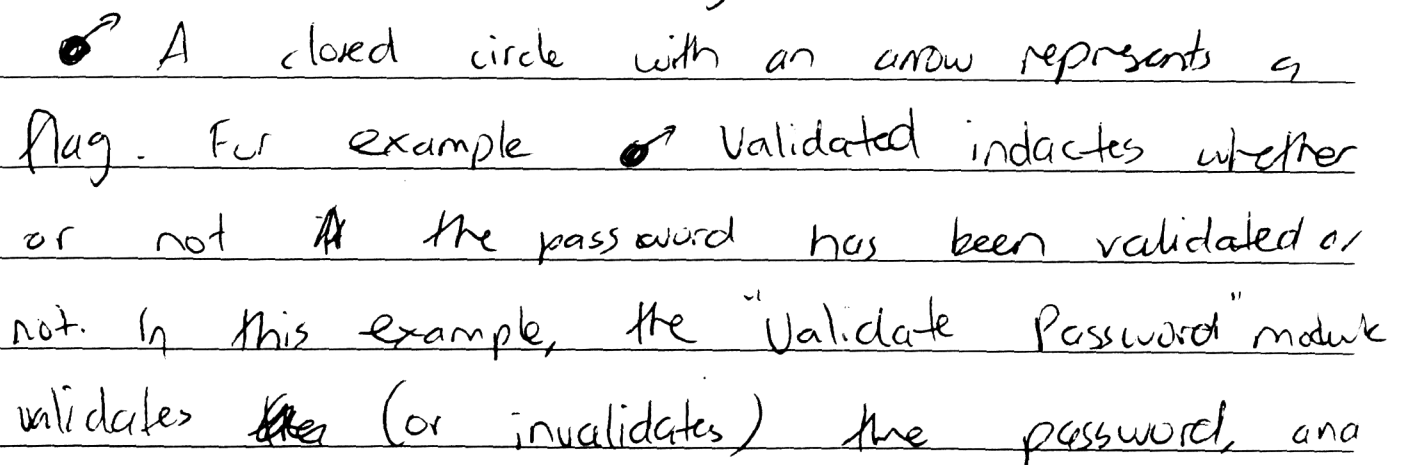 A closed circle with an arrow represents a
flag. For example Validated indactes whether
or not the password has been validated or
not. In this example, the "Validate Password" module
validates (or invalidates) the password, and